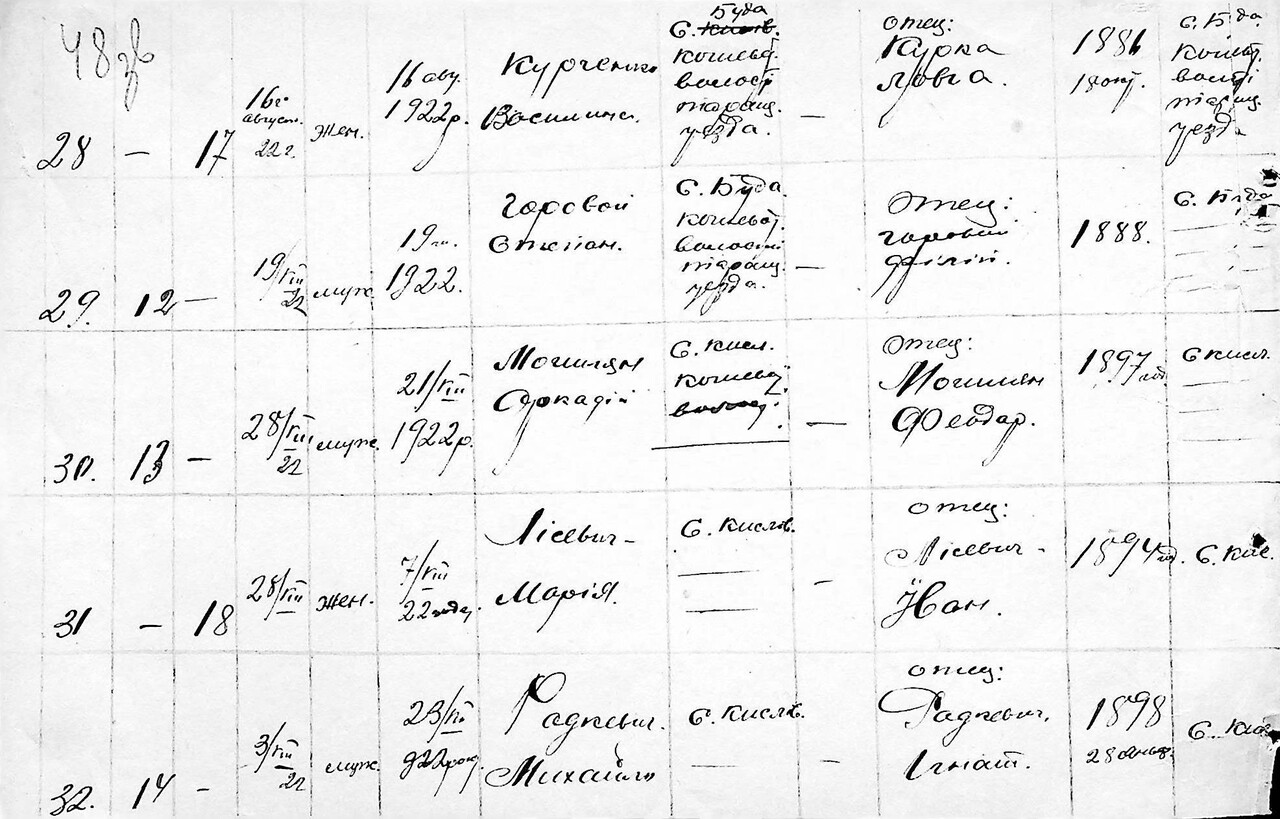 48 зв
28 — 17 16го август. 22 г. жен. 16 авг. 1922 р. Курченко Василина. с. Буда Кошеват. волост таращ. уезда. — отец: Курка 1886 с. Буда Кошеват. волост таращ. уезда
29. 12 — 19/VIII 22 муж. 19 1922. Горовой Степан. С. Буда. Кошеват. волости таращ. уезда. — Отец: Горовий Філіп. 1888. с. Буда
30. 13 — 28/VIII 22 муж. 21/VIII 1922 р. Могилян Аркадій С. Кисл. Кошеват. волост. — Отец: Могилян Феодар. 1897 год С Кисл.
31 — 18 28/VIII жен. 7/VIII 22 года Лісевич Марія. С. Кислов. — отец: Лісевич Йван. 1894 год. С. Кис.
32. 14 — 3/VIII 22 муж. 23/VII 922 року Радкевич. Михайло С. Кислов. — отец: Радкевич. Ігнат. 1898 С. Кис